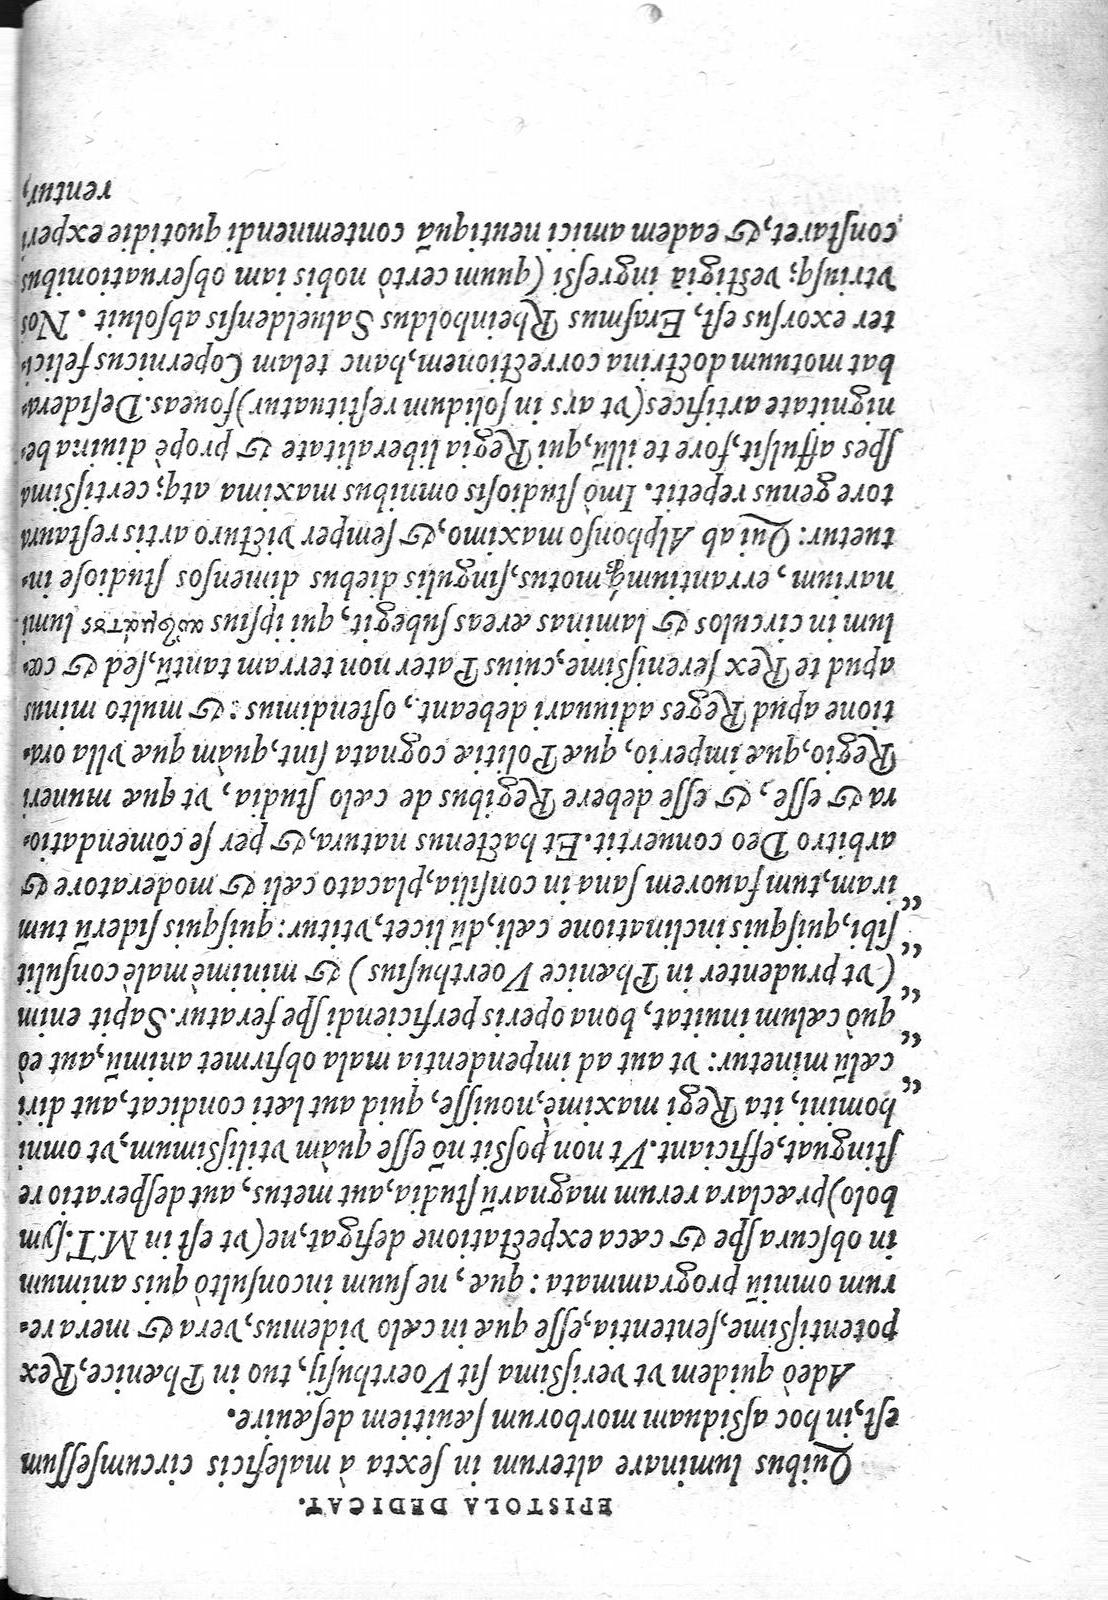 EPISTOLA DEDICAT.
Quibus luminare alterum in sexta à maleficis circumsessum
est, in hoc aßiduam morborum sæuitiem desæuire.
Adeò quidem vt verißima sit Voerthusij, tuo in Phœnice, Rex
potentißime, sententia, esse quæ in cælo videmus, vera & mera re=
rum omniũ programmata: quæ, ne suum inconsultò quis animum
in obscura spe & cæca expectatione defigat, ne (vt est in M.T. sym
bolo) præclara rerum magnarũ studia, aut metus, aut desperatio re
stinguat, efficiant. Vt non poßit nõ esse quàm vtilißimum, vt omni
„ homini, ita Regi maximè, nouisse, quid aut læti condicat, aut diri
cælũ minetur: vt aut ad impendentia mala obfirmet animũ, aut eò
„ quò cælum inuitat, bona operis perficiendi spe feratur. Sapit enim
„ (vt prudenter in Phœnice Voerthusius) & minimè malè consulit
„ sibi, quisquis inclinatione cæli, dũ licet, vtitur: quisquis siderũ tum
„ iram, tum fauorem sana in consilia, placato cæli & moderatore &
arbitro Deo conuertit. Et hactenus natura, & per se cõmendatio=
ra & esse, & esse debere Regibus de cælo studia, vt quæ muneri
Regio, quæ imperio, quæ Politiæ cognata sint, quàm quæ vlla ora=
tione apud Reges adiuuari debeant, ostendimus: & multo minus
apud te Rex serenißime, cuius Pater non terram tantũ, sed & cæ=
lum in circulos & laminas æreas subegit, qui ipsius lumi
narium, errantiumq́; motus, singulis diebus dimensos studiose in=
tuetur: Qui ab Alphonso maximo, & semper victuro artis restaura
tore genus repetit. Imò studiosis omnibus maxima atq; certißima
spes affulsit, fore te illũ, qui Regia liberalitate & propè diuina be=
nignitate artifices (vt ars in solidum restituatur) foueas. Desidera=
bat motuum doctrina correctionem, hanc telam Copernicus felici=
ter exorsus est, Erasmus Rheinholdus Salueldensis absoluit. Nos
vtriusq; vestigia ingreßi (quum certò nobis iam obseruationibus
constaret, & eadem amici neutiquã contemnendi quotidie experi
rentur,